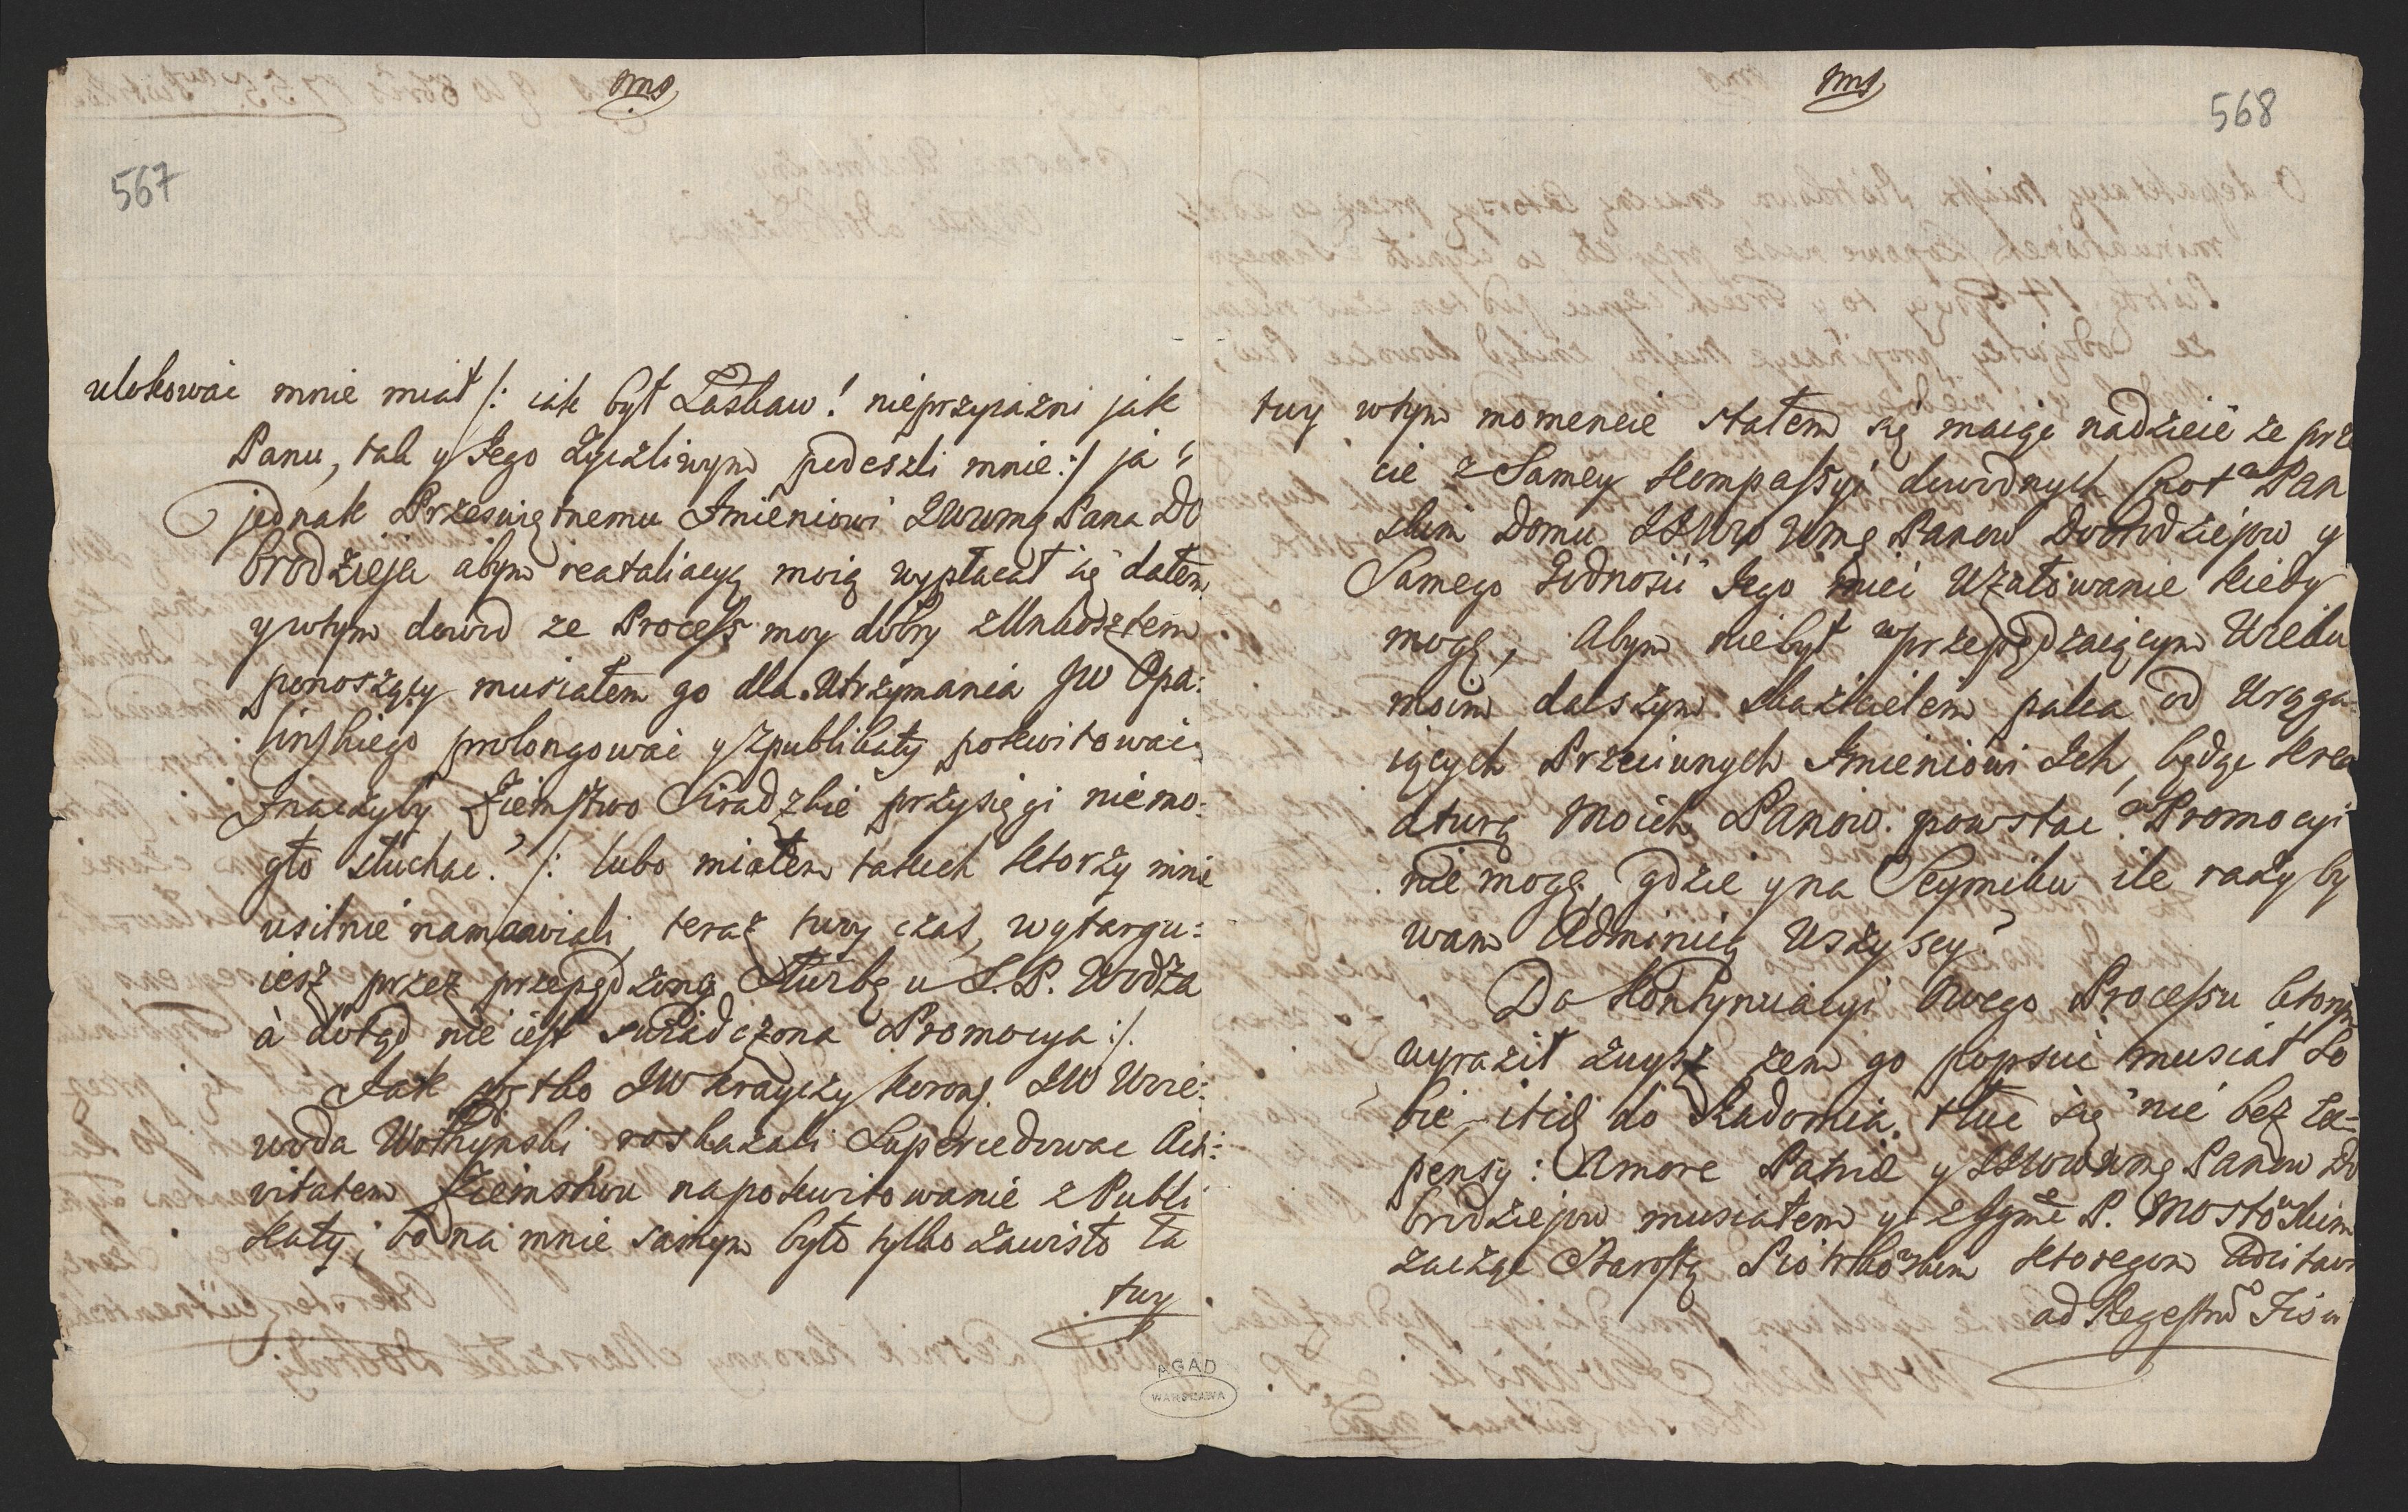 567
ulokować mnie miał /: iak był Łaskaw! nieprzyiaźni jak
Panu, tak y Jego życzliwym podeszli mnie :/ ja
jednak Przeswiętnemu Imieniowi Pana Do
brodzieja abym reataliacyą moią wypłacał się dałem
y wtym dowod ze Process moy dobry
ponosżący musiałem go dla Utrzymania JW Opa:
linskiego prolongować y zpublikaty pokwitować,
Inaczyby Ziemstwo Siradzkie przysięgi niemo:
gło słuchac? /: lubo miałem takich ktorzy mnie
usilnie namawiali, teraz twoy czas, wytargu:
iesz przez przepędzoną Służbę u S. P. Wodza
à dotąd nie iest swiadczona Promocya :/.
Jak prętko JW Krayczy Koronę. JW Woie:
woda Wołhynski roskazali Supersedowac Acti:
vitatem Ziemstwu na pokwitowanie z Publi
katy, to na mnie samym było tylko zawisło ta
tuy
AGAD
WARSZAWA
568
tuy wtym momencie stałem się maiąc nadzieie ze prze
cie z Samey Kompassyi dowodnych Cnot Pan
skim Domu Panow Dobrodziejow y
Samego Godnosci Jego mieć Użałowanie kiedy
mogę, Abym niebył w przepędzaiącym Wieku
moim dalszym palca od Urąga
iących Przeciwnych Imieniowi Ich, będąc kre
aturą Moich Panow. powstac a Promocyi
nie mogę, gdzie y na Seymiku ile razy by
wam Wszyscy?
Do Kontynuacyi owego Processu ktorym
wyraził zwysz zem go popsuć musiał So
bie, itiż do Radomia. tłuc się nie bez Ex=
pensy: Amore Patriæ y Panow Do
brodziejow musiałem y P. Mostowskim
zacząć Starostą Piotrkowskim ktoregom
ad Regestru Fisci